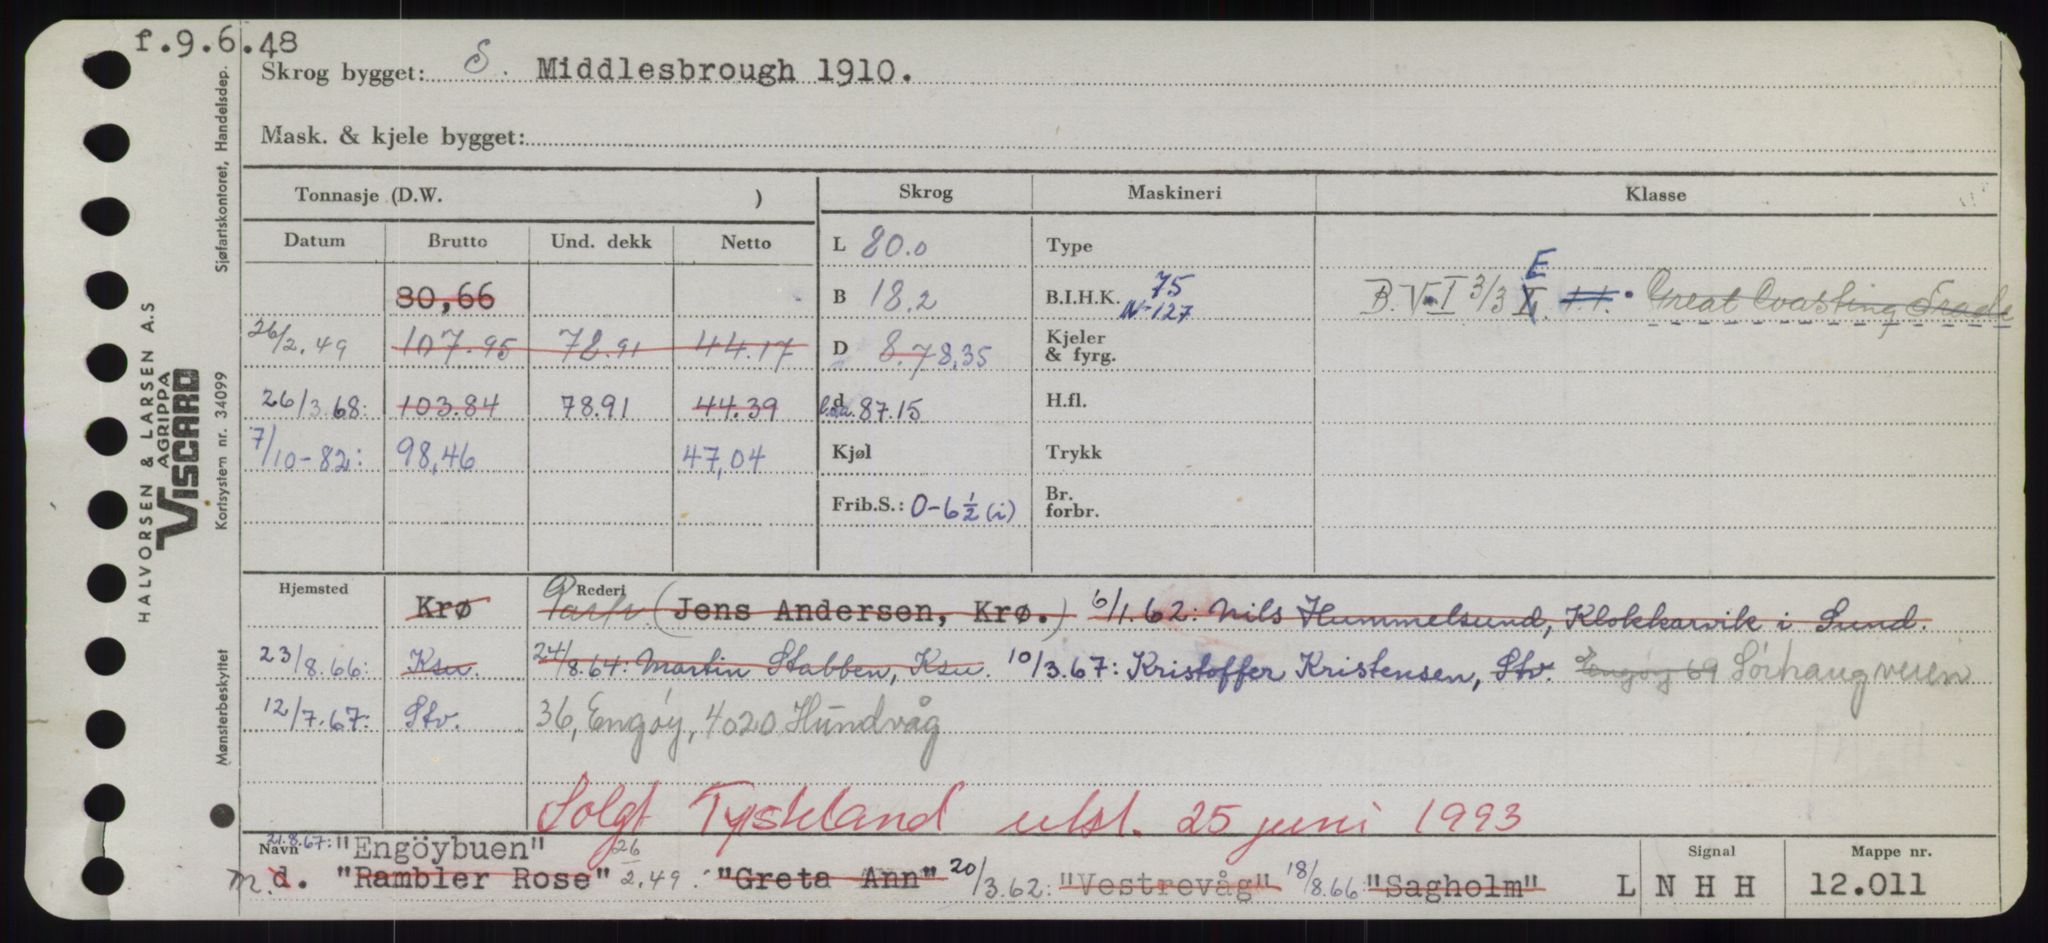 f.9.6.48
Skrog bygget: S. Middlesbrough 1910.
Mask. & kjele bygget:
Tonnasje (D.W. )
Skrog Maskineri Klasse
Datum Brutto Und. dekk Netto
L 80.0 Type
80,66
B 18.2 B.I.H.K. 75 N-127
B. V-I 3/3 E L. Great Coasting Trade
26/2.49 107.95 78.91 44.17
D 8.7 8,35 Kjeler & fyrg.
26/3.68: 103.84 78.91 44.39
d l.o.a. 87.15 H.fl.
7/10-82: 98,46 47,04
Kjøl Trykk
Frib.S.: 0-6½ (i) Br. forbr.
Hjemsted Rederi
Krø Partr. (Jens Andersen, Krø.) 6/1.62: Nils Hummelsund, Klokkarvik i Sund.
23/8.66: Ksu. 24/8.64: Martin Stabben, Ksu. 10/3.67: Kristoffer Kristensen, Stv. Engøy 69 Sörhaugveien
12/7.67: Stv. 36, Engøy, 4020 Hundvåg
Solgt Tyskland utst. 25 juni 1993
Navn 21.8.67: "Engöybuen"
Signal Mappe nr.
m. d. "Rambler Rose" 26/2.49: "Greta Ann" 20/3.62: "Vestrevåg" 18/8.66 "Sagholm" L N H H 12.011
HALVORSEN & LARSEN A.S
AGRIPPA
VISCARD
Kortsystem nr. 34099
Sjøfartskontoret, Handelsdep.
Mønsterbeskyttet